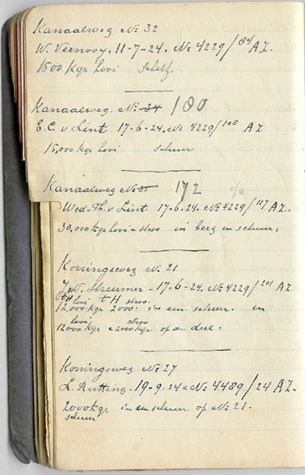 Kanaalweg No 32
W. Vernooy. 11-7-24. No 4229/84 A.Z.
1500 Kgr hooi schelf.
Kanaalweg No 34 180
E.C. v Lint 17-6-24. No 4229/100 A.Z.
15,000 kgr hooi schuur
Kanaalweg No 35 172
Wed. Th. v Lint 17-6-24. No 4229/117 A.Z.
30,000 kgr hooi + stroo in berg en schuur,
Koningsweg No. 21
Streumer - 17-6-24. No 4229/201 A.Z.
hooi stroo.
12000 kgr 2000 in een schuur. en
hooi stroo
12000 kgr 2000 kgr op den deel.
Koningsweg No 27
L. Rutting. 19-9-24 No 4489/24 A.Z.
2000 kgr in een schuur op No 21.